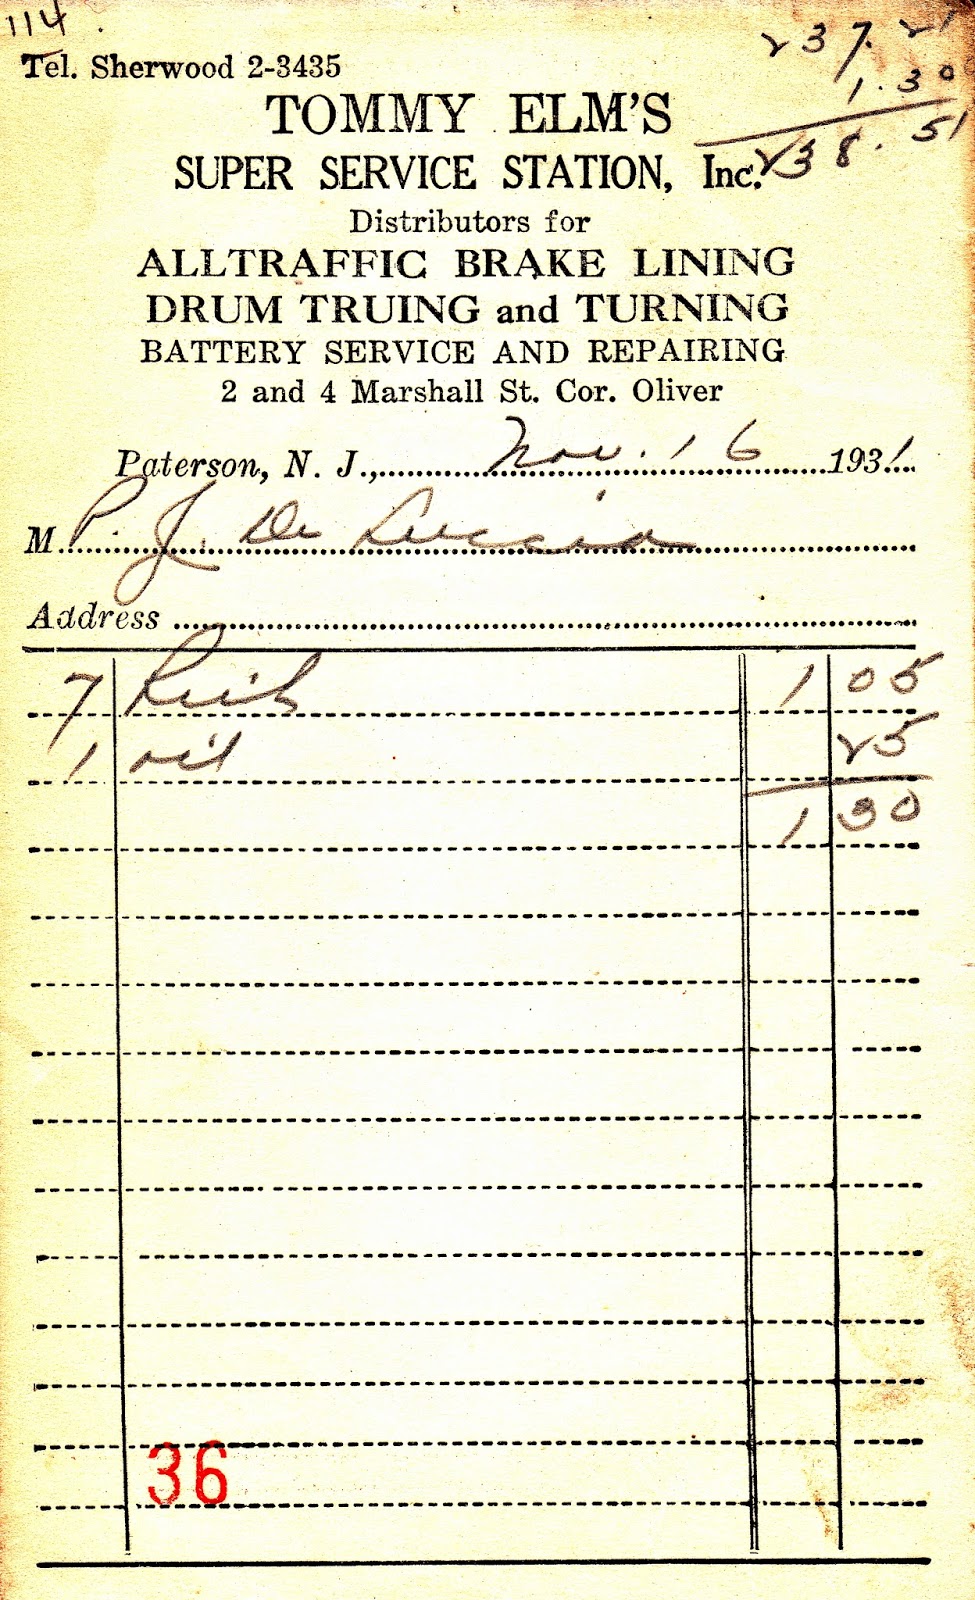 114.
237.21
1.30
238.51
Tel. Sherwood 2-3435
TOMMY ELM'S
SUPER SERVICE STATION, Inc.
Distributors for
ALLTRAFFIC BRAKE LINING
DRUM TRUING and TURNING
BATTERY SERVICE AND REPAIRING
2 and 4 Marshall St. Cor. Oliver
Paterson, N. J., Nov. 16 1931
M P. J. De Luccia
Address
7 1 05
1 oil 25
1 30
36